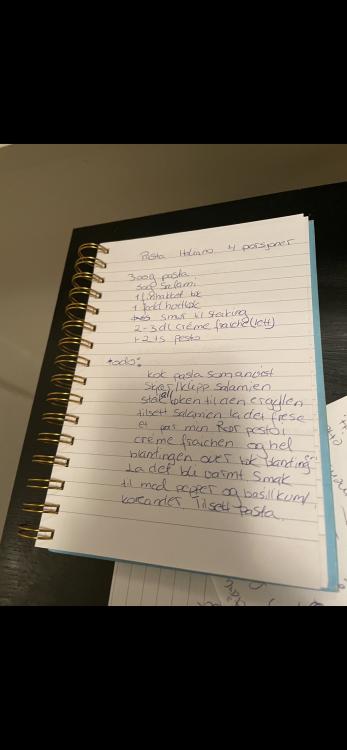 Pasta Italiano 4 porsjoner
300g pasta
salami
1 finhakket løk
1 fedd hvitløk
smør til steking
2-3 dl créme fraiche (lett)
1-2 ts pesto
kok pasta som anvist
Skjær/klipp salamien
stek løken til den er gyllen
tilsett salamien la det frese
et par min Rør pesto i
creme fraichen og hel
blandingen over løk blanding
La det bli varmt. Smak
til med pepper og basilikum/
koriander. Tilsett pasta.